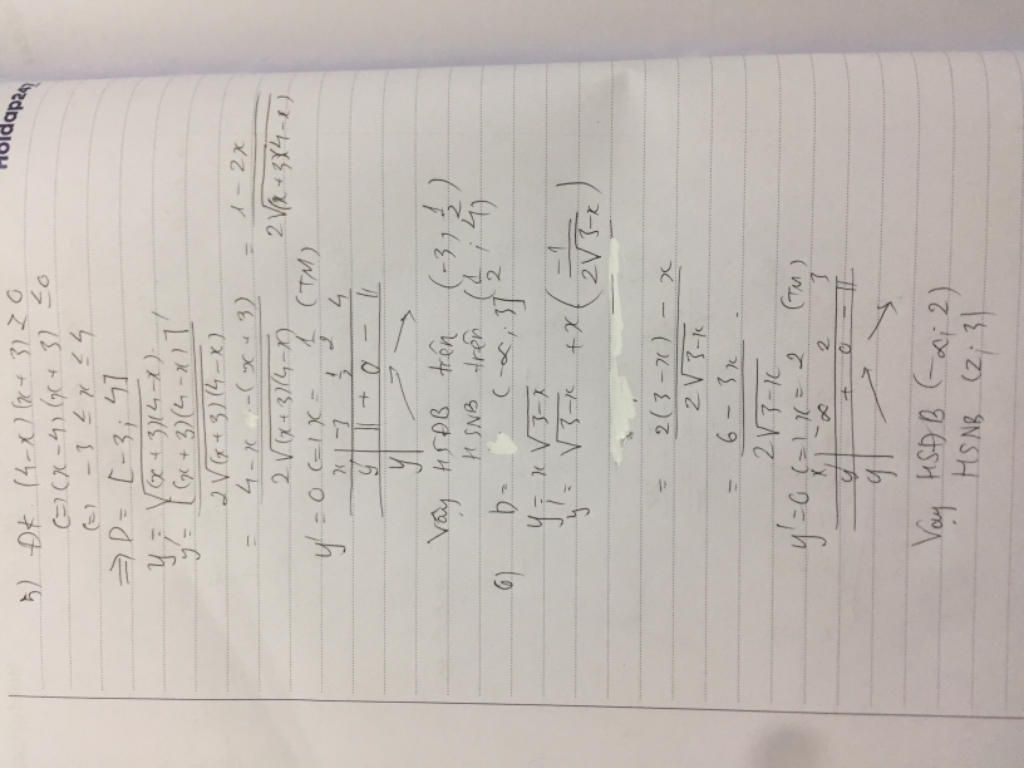 Holdapsby
5) ĐK (4-x)(x+3) ≥ 0
(=) (x-4)(x+3) ≤ 0
(=) -3 ≤ x ≤ 4
=> D = [-3; 4]
y = √(x+3)(4-x)
y' = [(x+3)(4-x)]' / 2√(x+3)(4-x)
= 4-x-(x+3) / 2√(x+3)(4-x) = 1-2x / 2√(x+3)(4-x)
y' = 0 (=) x = 1/2 (TM)
x | -3 1/2 4
y' || + 0 - ||
y ↗ ↘
Vậy HSĐB trên (-3; 1/2)
HSNB trên (1/2; 4)
6) D = (-∞; 3]
y = x√3-x
y' = √3-x + x(-1 / 2√3-x)
= 2(3-x) - x / 2√3-x
= 6-3x / 2√3-x
y' = 0 (=) x = 2 (TM)
x | -∞ 2 3
y' + 0 - ||
y ↗ ↘
Vậy HSĐB (-∞; 2)
HSNB (2; 3)